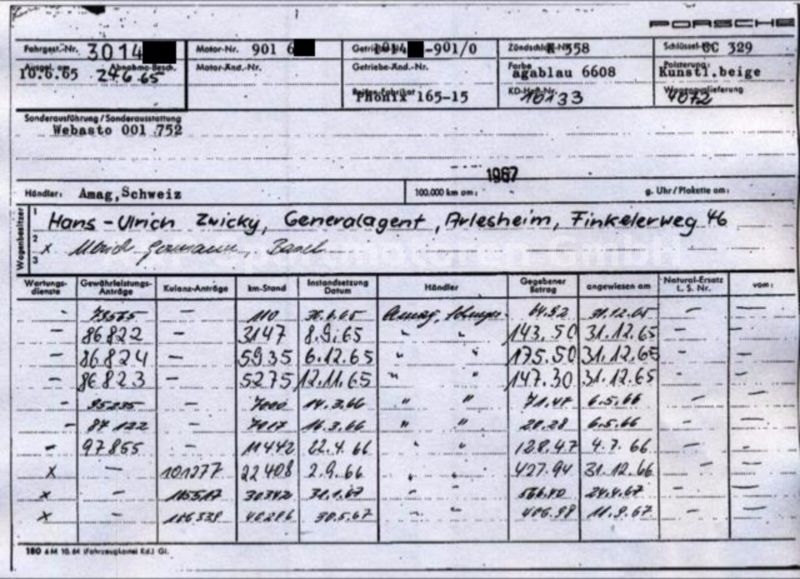 PORSCHE
Fahrgest.-Nr. 3014 Motor-Nr. 901 6 Getriebe-Nr. -901/0 Zündschloß-Nr. 558 Schlüssel-Nr. CC 329
Ausgel. am 10.6.65 Abnahme-Besch. 24.6.65 Motor-Änd.-Nr. Getriebe-Änd.-Nr. Farbe agablau 6608 Polsterung: Kunstl.beige
Reifen-Fabrikat Phönix 165-15 KD-Heft-Nr. 10133 4072
Sonderausführung / Sonderausstattung
Webasto 001 752
1967
Händler: Amag, Schweiz 100.000 km am: g. Uhr / Plakette am:
Wagenbesitzer
1 Hans-Ulrich Zwicky, Generalagent, Arlesheim, Finkelerweg 46
2 x Basel
3
Wartungsdienste Gewährleistungs-Anträge Kulanz-Anträge km-Stand Instandsetzung Datum Händler Gegebener Betrag angewiesen am Natural-Ersatz L. S. Nr. vom:
- - 110 Amag, 31.12.65 - -
- 86822 - 3147 8.9.65 " " 143.50 31.12.65 - -
- 86824 - 5935 6.12.65 " " 175.50 31.12.65 - -
- 86823 - 5275 12.11.65 " " 147.30 31.12.65 - -
- 95235 - 7000 14.3.66 " " 71.47 6.5.66 - -
- 87122 - 7017 16.3.66 " " 20.28 6.5.66 - -
- 97855 - 11442 22.4.66 " " 128.47 4.7.66 - -
x - 101277 22408 2.9.66 " " 427.94 31.12.66 - -
x - 30342 31.1.67 " " 24.4.67 - -
x - 106339 40286 30.5.67 " " 406.98 11.9.67 - -
180 6 M 10.64 (Fahrzeugkartei Kd.) Gl.